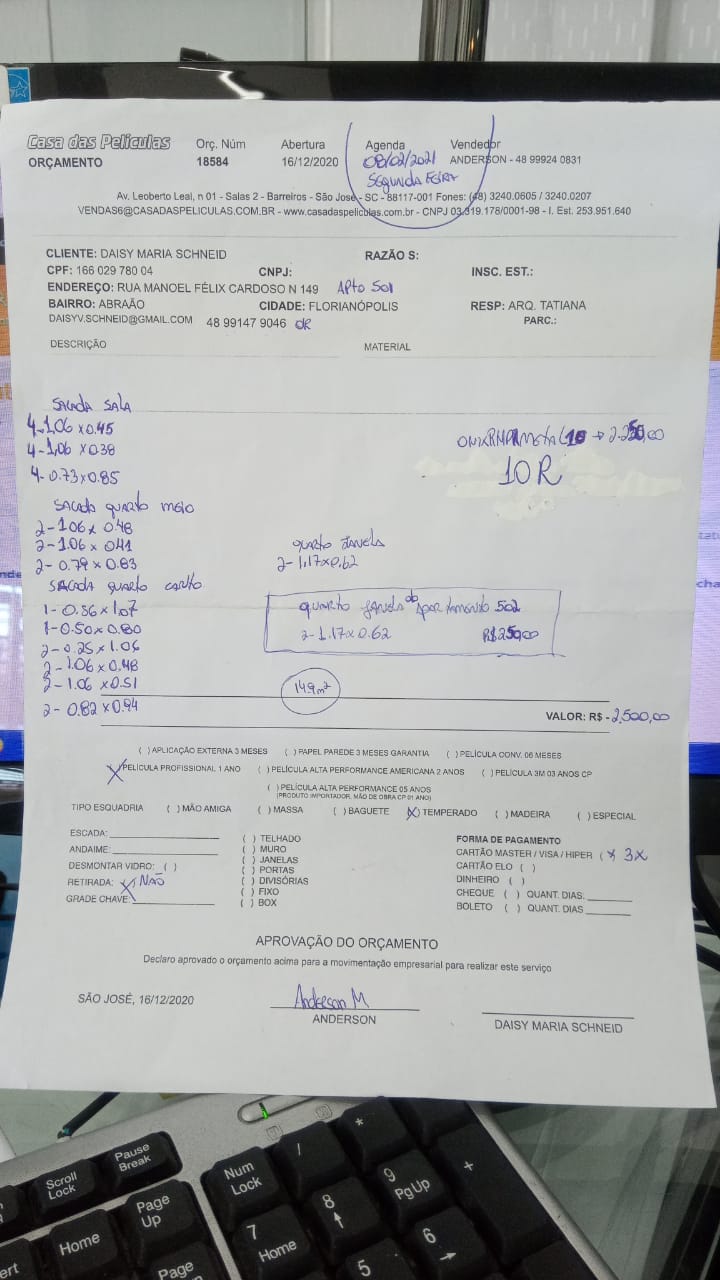 Casa das Películas Orç. Núm Abertura Agenda Vendedor
ORÇAMENTO 18584 16/12/2020 08/02/2021 ANDERSON - 48 99924 0831
SEGUNDA FEIRA
Av. Leoberto Leal, n 01 - Salas 2 - Barreiros - São José - SC - 88117-001 Fones: (48) 3240.0605 / 3240.0207
VENDAS6@CASADASPELICULAS.COM.BR - www.casadaspeliculas.com.br - CNPJ 03.319.178/0001-98 - I. Est. 253.951.640
CLIENTE: DAISY MARIA SCHNEID RAZÃO S:
CPF: 166 029 780 04 CNPJ: INSC. EST.:
ENDEREÇO: RUA MANOEL FÉLIX CARDOSO N 149 APto 501
BAIRRO: ABRAÃO CIDADE: FLORIANÓPOLIS RESP: ARQ. TATIANA
DAISYV.SCHNEID@GMAIL.COM 48 99147 9046 OR PARC.:
DESCRIÇÃO MATERIAL
SACADA SALA
4-1.06 x 0.45
4-1.06 x 0.38
4-0.73x0.85
2.250,00
10R
SACADA quarto meio
2-1.06 x 0.48
2-1.06 x 0.41
2-0.79 x 0.83
quarto JANELA
2-1.17x0.62
SACADA quarto canto
1-0.36 x 1.07
1-0.50x0.80
2-0.25x1.06
2-1.06x0.48
2-1.06 x0.51
2-0.82 x0.94
quarto JANELA do Apartamento 502
2-1.17x0.62 R$250,00
14.9m²
VALOR: R$ -2,500,00
( ) APLICAÇÃO EXTERNA 3 MESES ( ) PAPEL PAREDE 3 MESES GARANTIA ( ) PELÍCULA CONV. 06 MESES
(X) PELÍCULA PROFISSIONAL 1 ANO ( ) PELÍCULA ALTA PERFORMANCE AMERICANA 2 ANOS ( ) PELÍCULA 3M 03 ANOS CP
( ) PELÍCULA ALTA PERFORMANCE 05 ANOS
(PRODUTO IMPORTADOR, MÃO DE OBRA CP 01 ANO)
TIPO ESQUADRIA ( ) MÃO AMIGA ( ) MASSA ( ) BAGUETE (X) TEMPERADO ( ) MADEIRA ( ) ESPECIAL
ESCADA: ( ) TELHADO FORMA DE PAGAMENTO
ANDAIME: ( ) MURO CARTÃO MASTER / VISA / HIPER (x 3x
DESMONTAR VIDRO: ( ) ( ) JANELAS CARTÃO ELO ( )
RETIRADA: (x) NÃO ( ) PORTAS DINHEIRO ( )
GRADE CHAVE: ( ) DIVISÓRIAS CHEQUE ( ) QUANT. DIAS:
( ) FIXO BOLETO ( ) QUANT. DIAS
( ) BOX
APROVAÇÃO DO ORÇAMENTO
Declaro aprovado o orçamento acima para a movimentação empresarial para realizar este serviço
SÃO JOSÉ, 16/12/2020 Anderson M
ANDERSON DAISY MARIA SCHNEID
Scroll Lock Pause Break Num Lock / *
Home Page Up 7 Home 8 9 PgUp +
Page 5 6